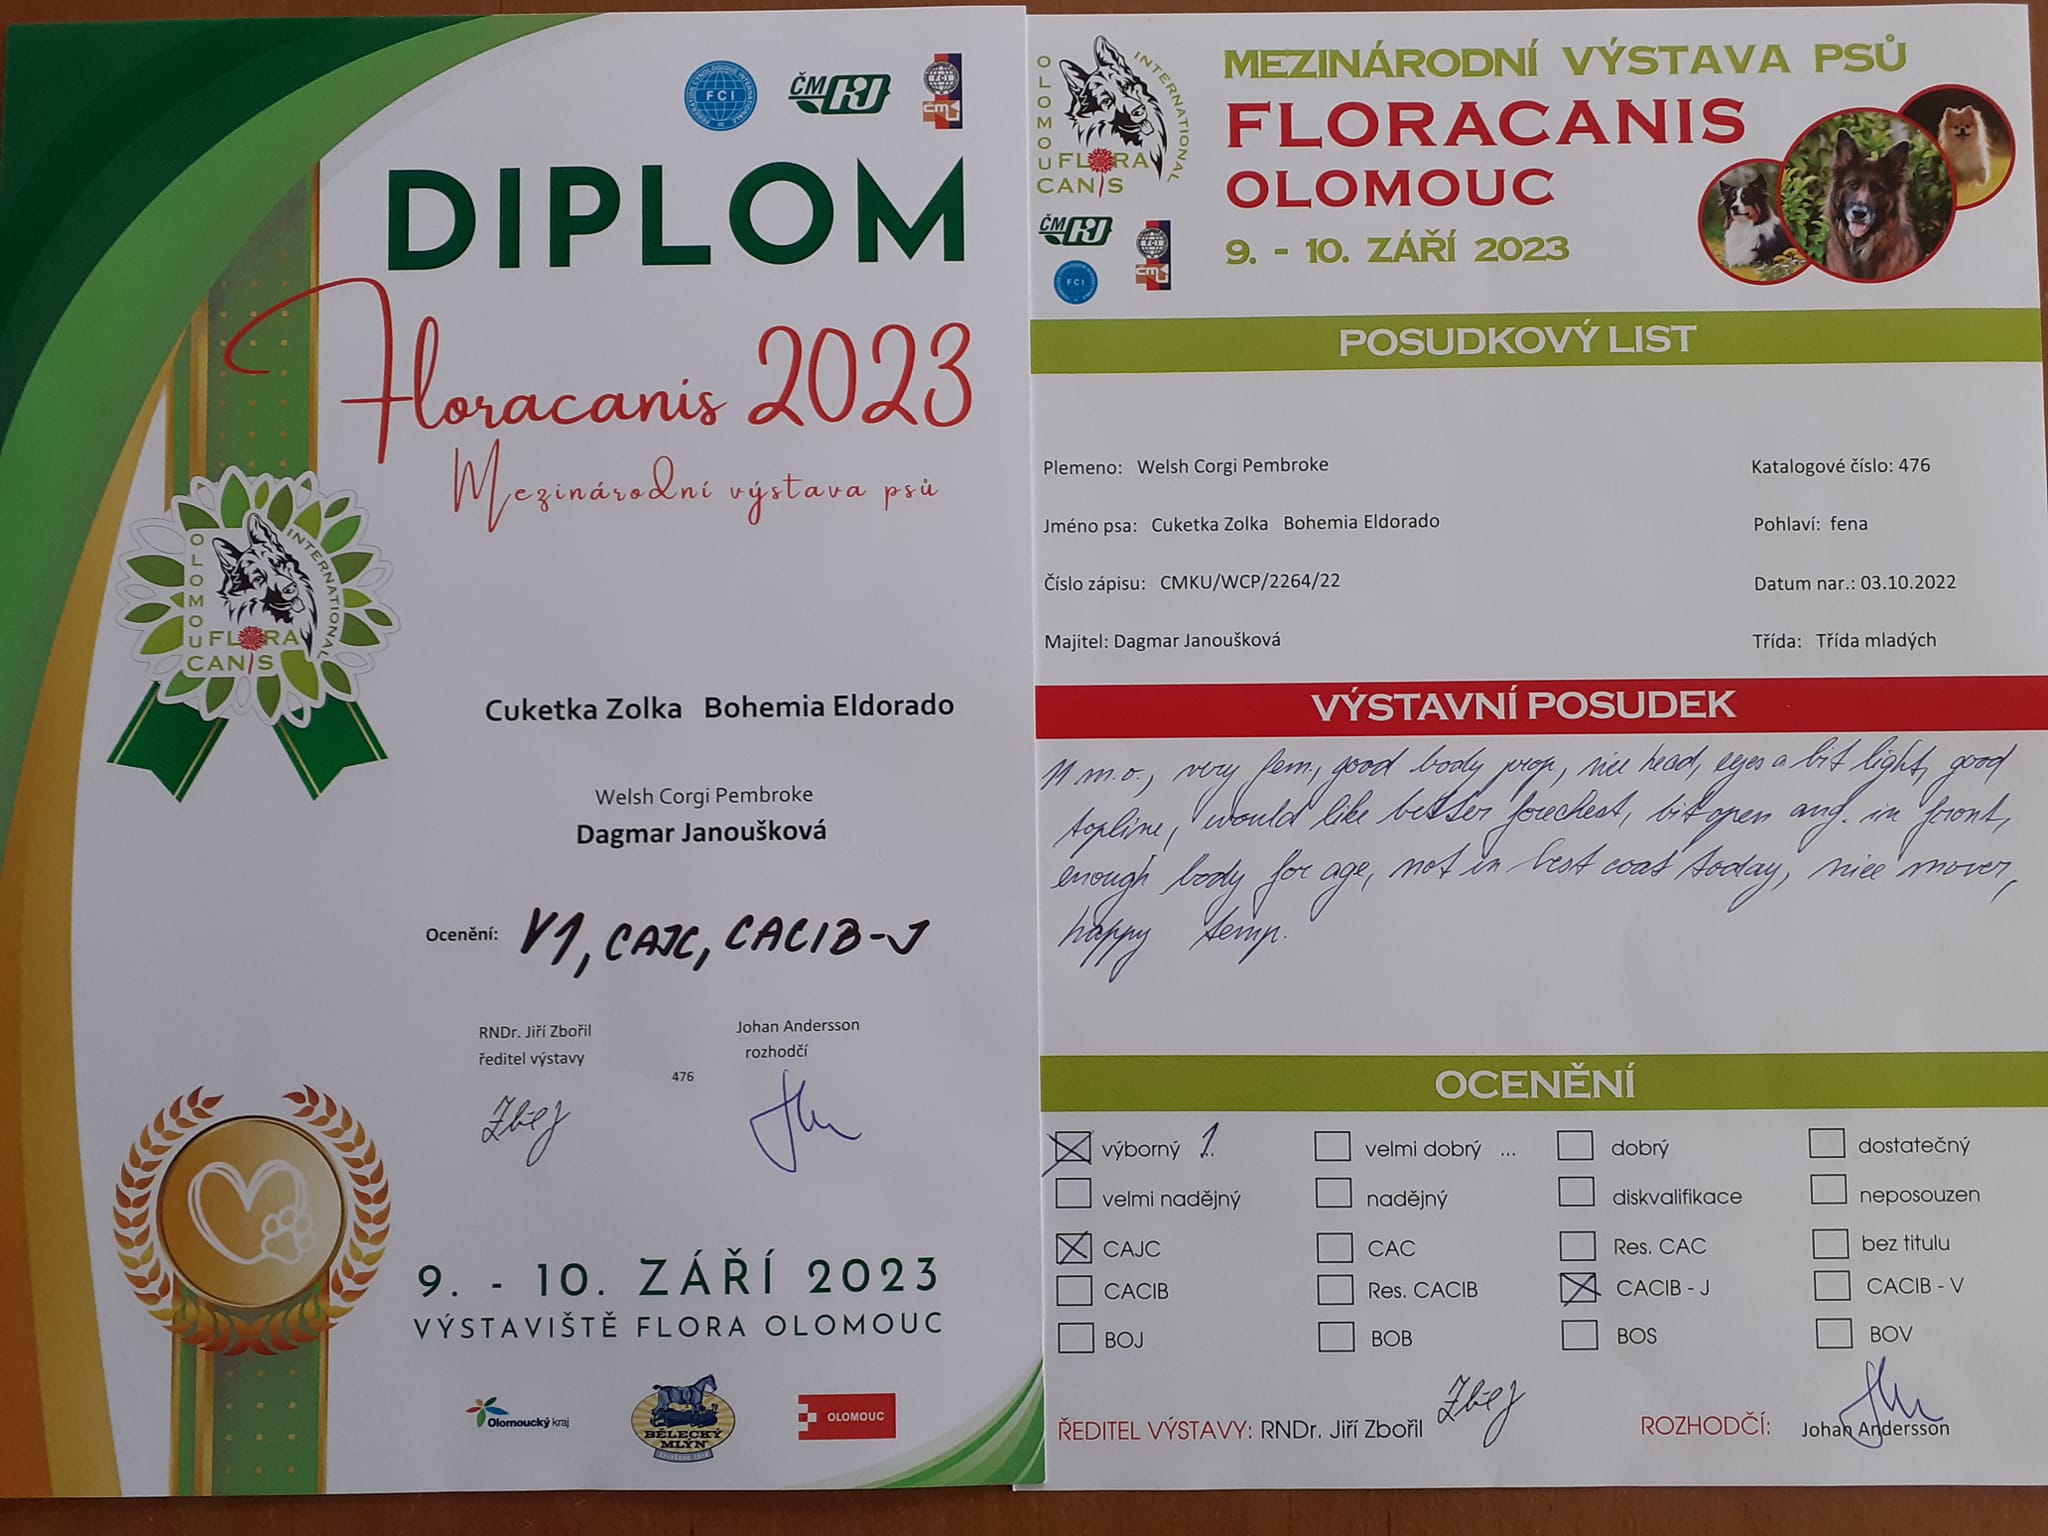 FCI
ČMKJ
FCI
ČMKU
DIPLOM
Floracanis 2023
Mezinárodní výstava psů
OLOMOUC
INTERNATIONAL
FLORA
CANIS
Cuketka Zolka Bohemia Eldorado
Welsh Corgi Pembroke
Dagmar Janoušková
Ocenění: V1, CAJC, CACIB-J
RNDr. Jiří Zbořil
ředitel výstavy
Johan Andersson
rozhodčí
476
9. - 10. ZÁŘÍ 2023
VÝSTAVIŠTĚ FLORA OLOMOUC
Olomoucký kraj
BĚLECKÝ
MLÝN
OLOMOUC
OLOMOUC
INTERNATIONAL
FLORA
CANIS
FCI
MEZINÁRODNÍ VÝSTAVA PSŮ
FLORACANIS
OLOMOUC
9. - 10. ZÁŘÍ 2023
POSUDKOVÝ LIST
Plemeno: Welsh Corgi Pembroke Katalogové číslo: 476
Jméno psa: Cuketka Zolka Bohemia Eldorado Pohlaví: fena
Číslo zápisu: CMKU/WCP/2264/22 Datum nar.: 03.10.2022
Majitel: Dagmar Janoušková Třída: Třída mladých
VÝSTAVNÍ POSUDEK
11 m.o., very fem., good body prop, nice head, eyes a bit light, good
topline, would like better forechest, bit open ang. in front,
enough body for age, not in best coat today, nice mover,
happy temp.
OCENĚNÍ
výborný 1. velmi dobrý ... dobrý dostatečný
velmi nadějný nadějný diskvalifikace neposouzen
CAJC CAC Res. CAC bez titulu
CACIB Res. CACIB CACIB - J CACIB - V
BOJ BOB BOS BOV
ŘEDITEL VÝSTAVY: RNDr. Jiří Zbořil ROZHODČÍ: Johan Andersson